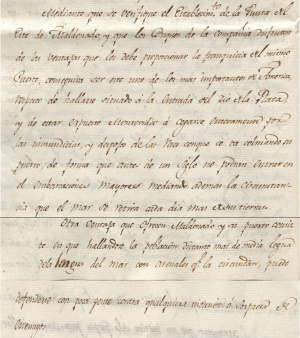 Mediante que se verifique el Establecimto. de la Punta del
Este de Maldonado y que los Buques de la Compañia disfruten
de las ventajas que les debe proporcionar la franquicia del mismo
Puerto, conseguira ser este uno de los mas importantes de America
respecto de hallarse situado á la entrada del Rio de la Plata
y de estar expuesto Montevideo á cegarse enteramente por
las inmundicias, y despojos de las que se va colmando su
puerto, de forma que antes de un Siglo no podran entrar en
el embarcaciones mayores mediando ademas la circunstan-
cia que el mar se retira cada dia mas de sus tierras.
Otra ventaja que ofrece Maldonado y su puerto consis-
te en que hallandose la poblacion distante mas de media legua
del mar con arenales qe. la circundan, puede
defenderse con poca gente contra qualquiera invasion ó sorpresa de
enemigos